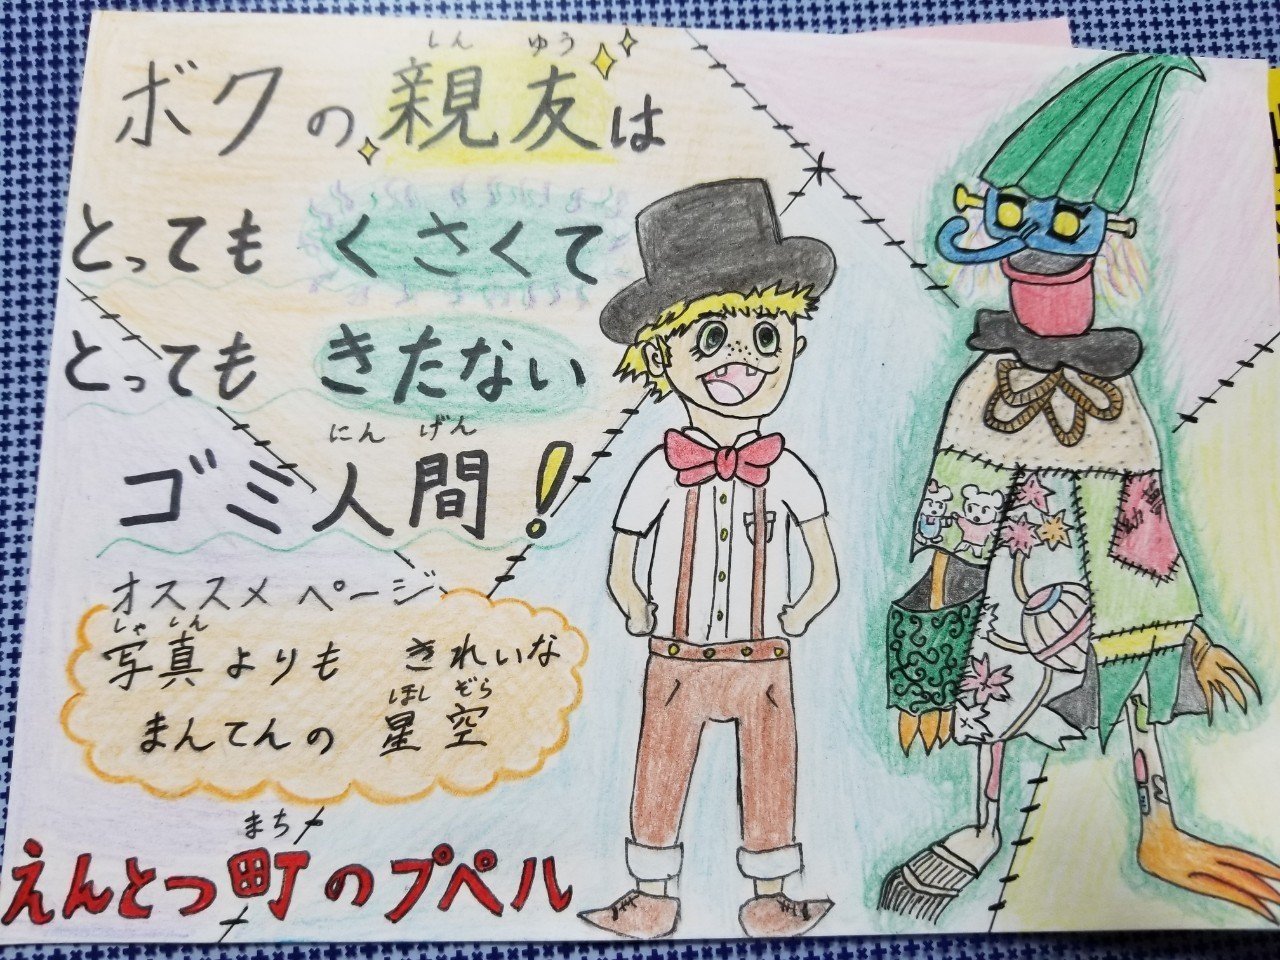 しん ゆう
ボクの親友は
とっても くさくて
とっても きたない
にん げん
ゴミ人間!
オススメ ページ
しゃ しん
写真よりも きれいな
ほし ぞら
まんてんの 星空
まち
えんとつ町のプペル